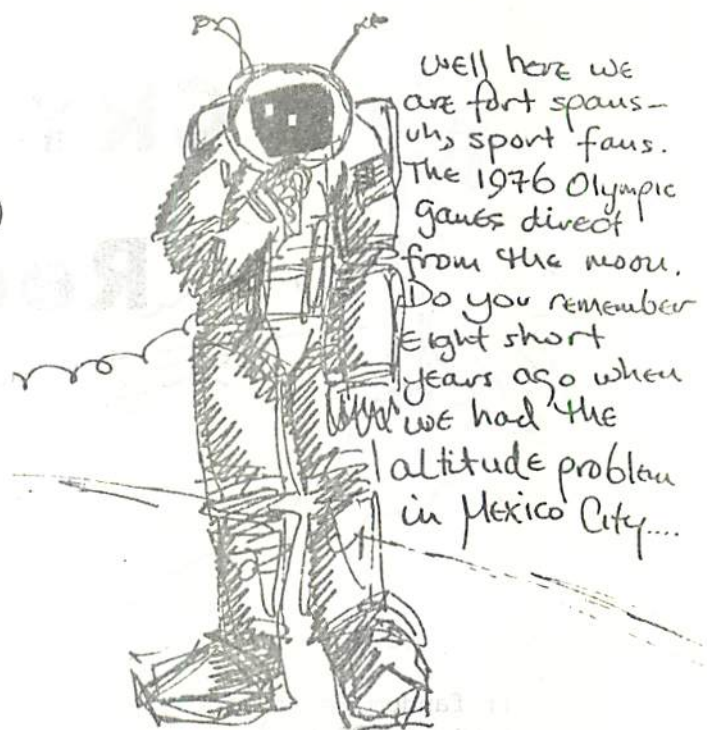 well here we
are fort spans-
uh, sport fans.
The 1976 Olympic
games direct
from the moon.
Do you remember
Eight short
years ago when
we had the
altitude problem
in Mexico City....